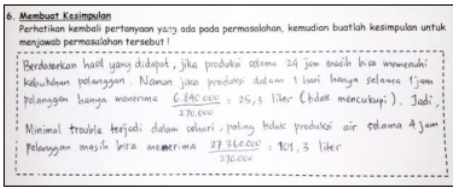 6. Membuat Kesimpulan
Perhatikan kembali pertanyaan yang ada pada permasalahan, kemudian buatlah kesimpulan untuk
menjawab permasalahan tersebut !
Berdasarkan hasil yang didapat, jika produksi selama 24 jam masih bisa memenuhi
kebutuhan pelanggan. Namun jika produksi dalam 1 hari hanya selama 1 jam
pelanggan hanya menerima 6.840.000 / 270.000 = 25,3 liter (tidak mencukupi). Jadi,
Minimal trouble terjadi dalam sehari, paling tidak produksi air selama 4 jam
pelanggan masih bisa menerima 27.360.000 / 270.000 = 101,3 liter